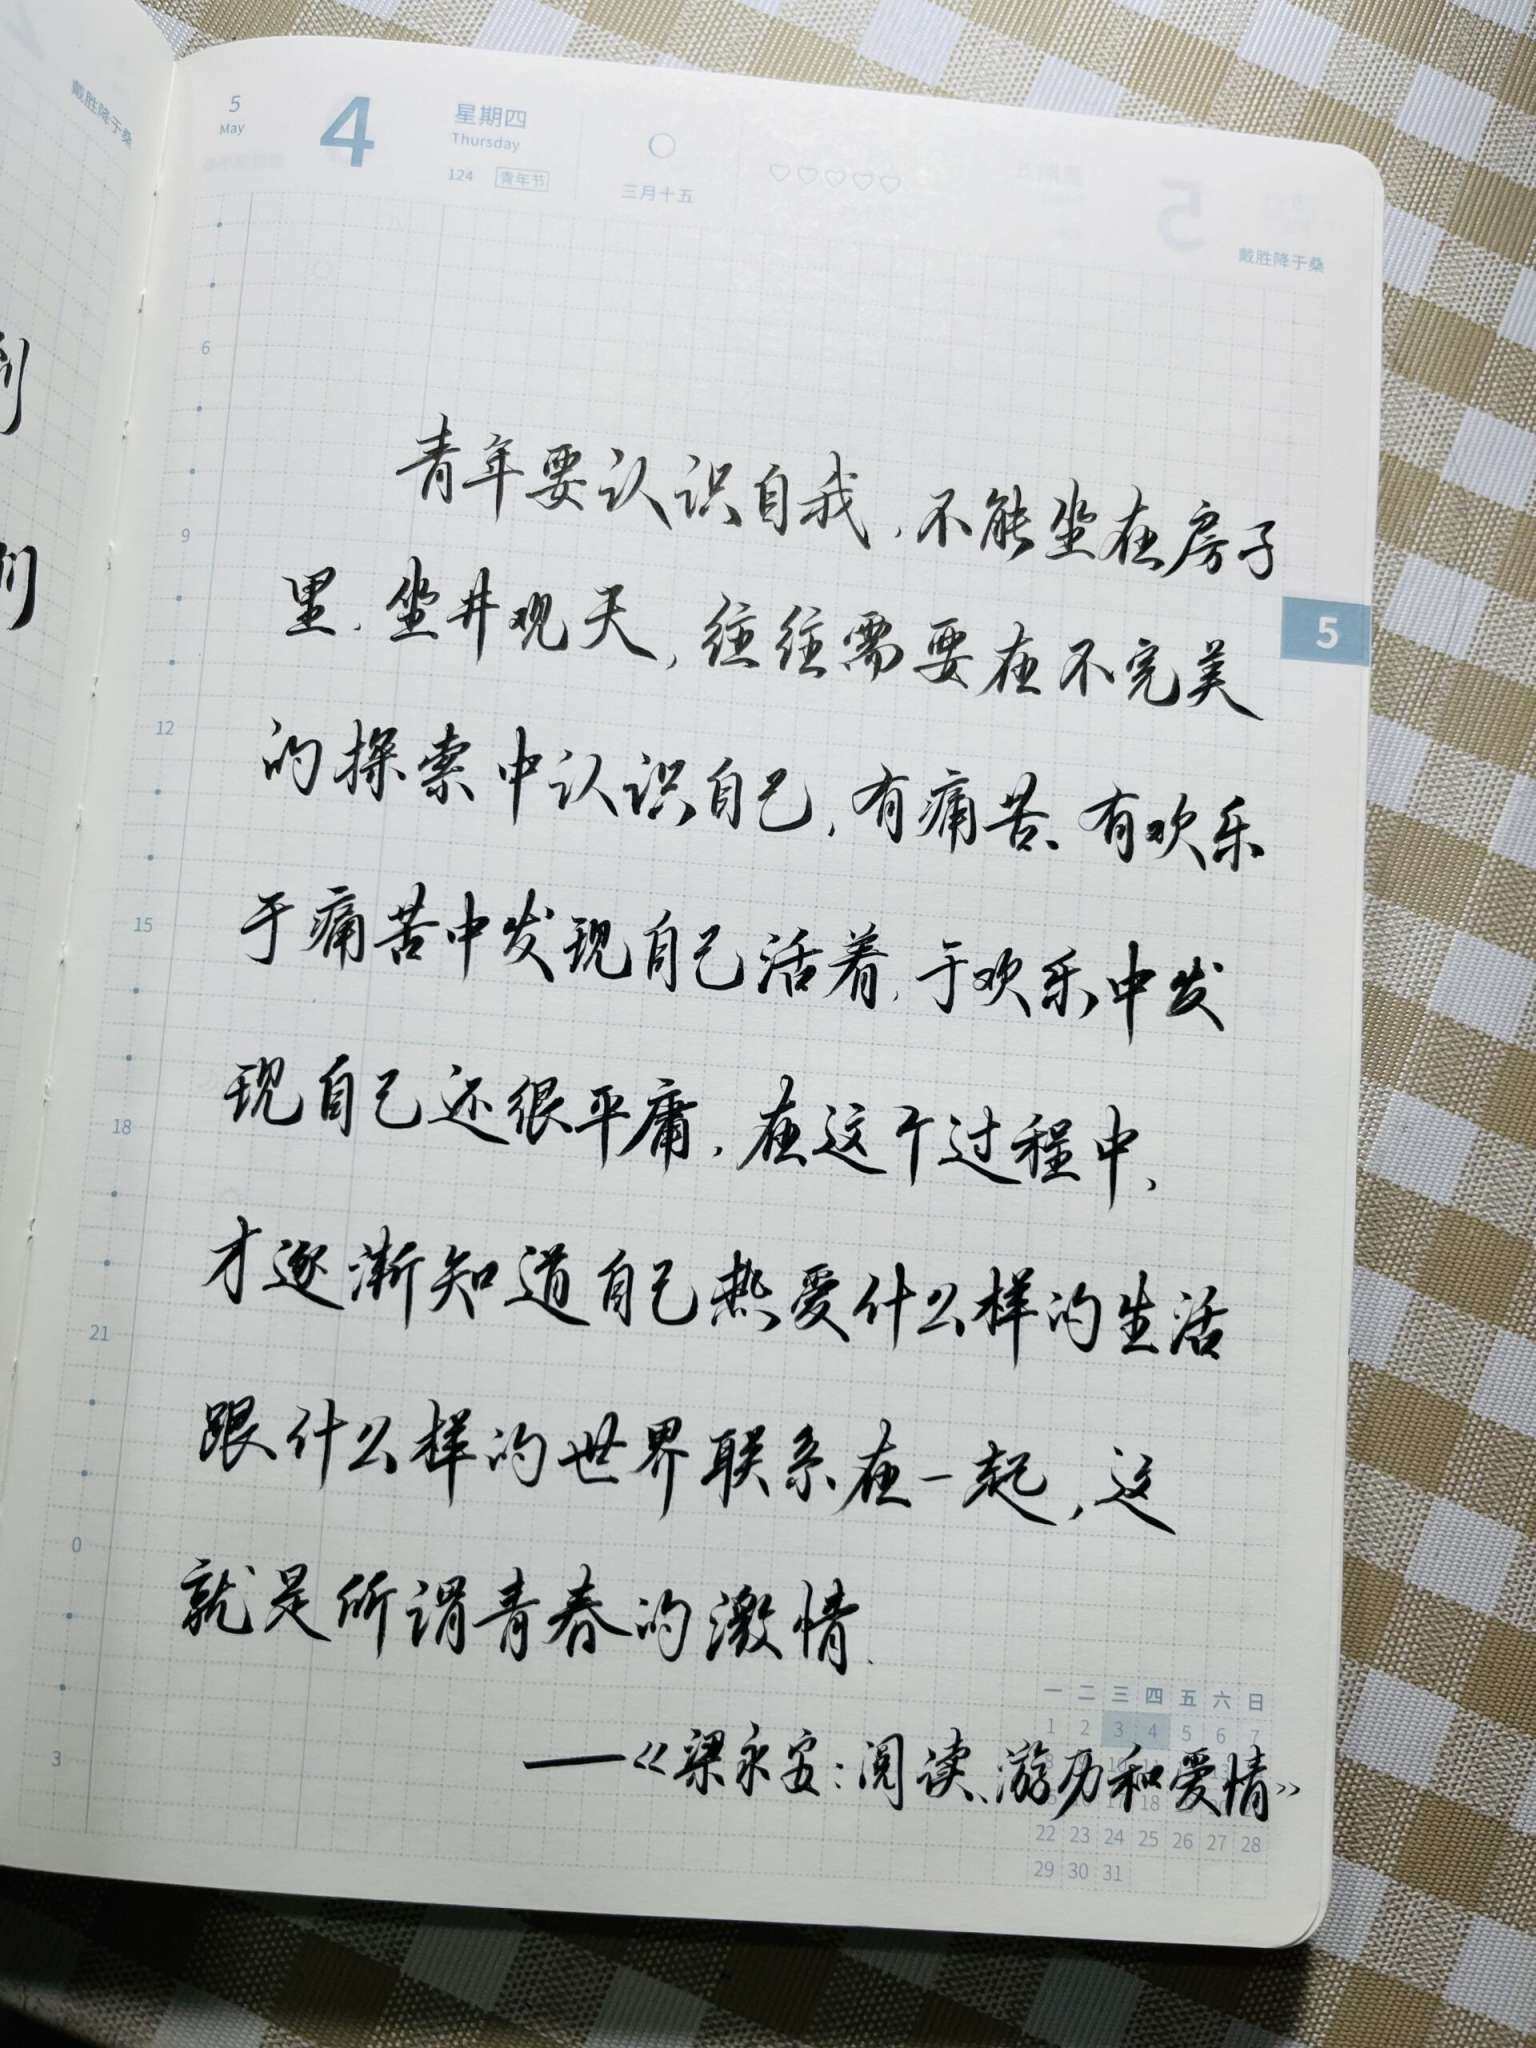 戴胜降于桑
5
May
4
星期四
Thursday
124 青年节
三月十五
戴胜降于桑
到
们
6
9
12
15
18
21
0
3
5
青年要认识自我,不能坐在房子
里、坐井观天,往往需要在不完美
的探索中认识自己,有痛苦、有欢乐
于痛苦中发现自己活着,于欢乐中发
现自己还很平庸,在这个过程中,
才逐渐知道自己热爱什么样的生活
跟什么样的世界联系在一起,这
就是所谓青春的激情.
——《梁永安:阅读、游历和爱情》
一 二 三 四 五 六 日
1 2 3 4 5 6 7
22 23 24 25 26 27 28
29 30 31